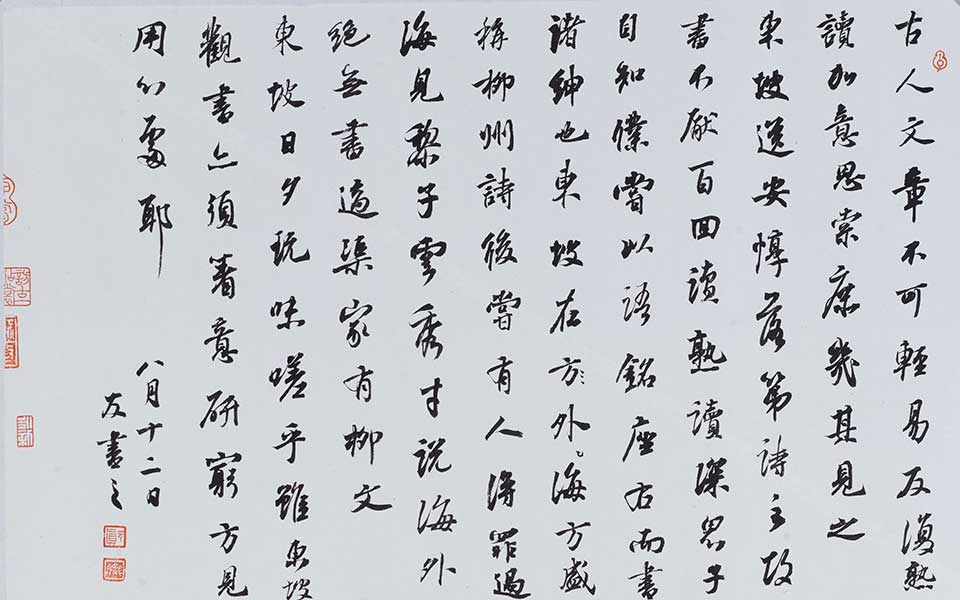 古人文章不可輕易反復熟
讀加意思索庶幾其見之
東坡送安惇落第詩云故
書不厭百回讀熟讀深思子
自知僕嘗以語銘座右而書
諸紳也東坡在方外海方盛
稱柳州詩後嘗有人得罪過
海見黎子雲秀才說海外
絕無書適渠家有柳文
東坡日夕玩味嗟乎雖東坡
觀書亦須着意研窮方見
用心處耶
八月十二日
友書之